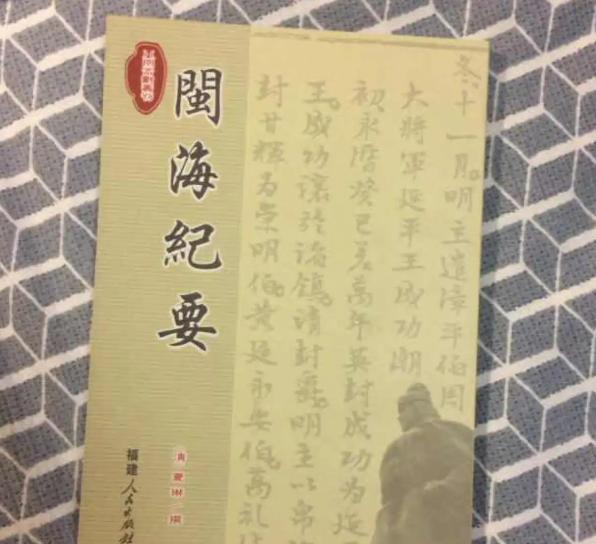 閩海紀要
清 夏琳 撰
福建人民出版社
冬、十一月。明主遣漳平伯周
大將軍延平王成功潮
初、永曆癸巳差萬年英封成功為延
王。成功讓於諸鎮。請封爵。明主以帛
封甘輝為崇明伯。黃廷永安伯。萬礼